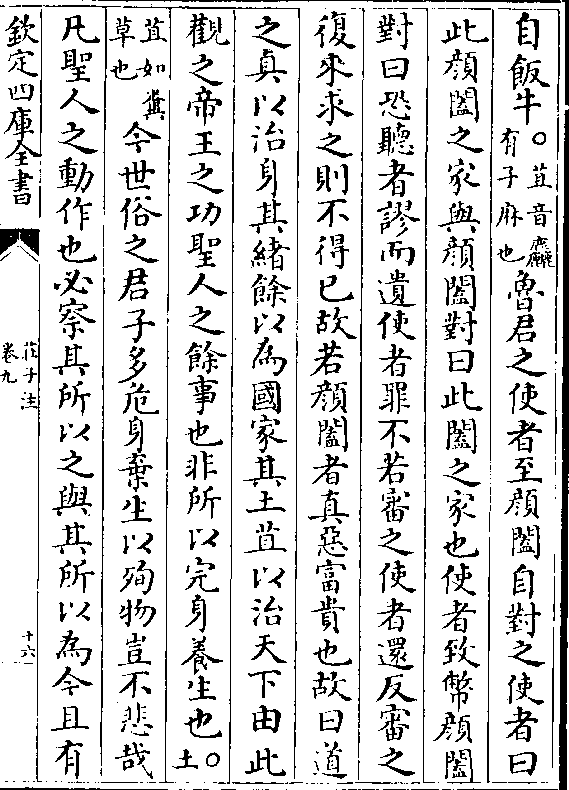 自飯牛○苴音麤有子麻也魯君之使者至顔闔自對之使者曰
此顔闔之家與顔闔對曰此闔之家也使者致幣顔闔
對曰恐聽者謬而遺使者罪不若審之使者還反審之
復來求之則不得已故若顔闔者真惡富貴也故曰道
之真以治身其緒餘以為國家其土苴以治天下由此
觀之帝王之功聖人之餘事也非所以完身養生也○土
苴如糞草也今世俗之君子多危身棄生以殉物豈不悲哉
凡聖人之動作也必察其所以之與其所以為今且有
欽定四庫全書
莊子注
卷九
十六